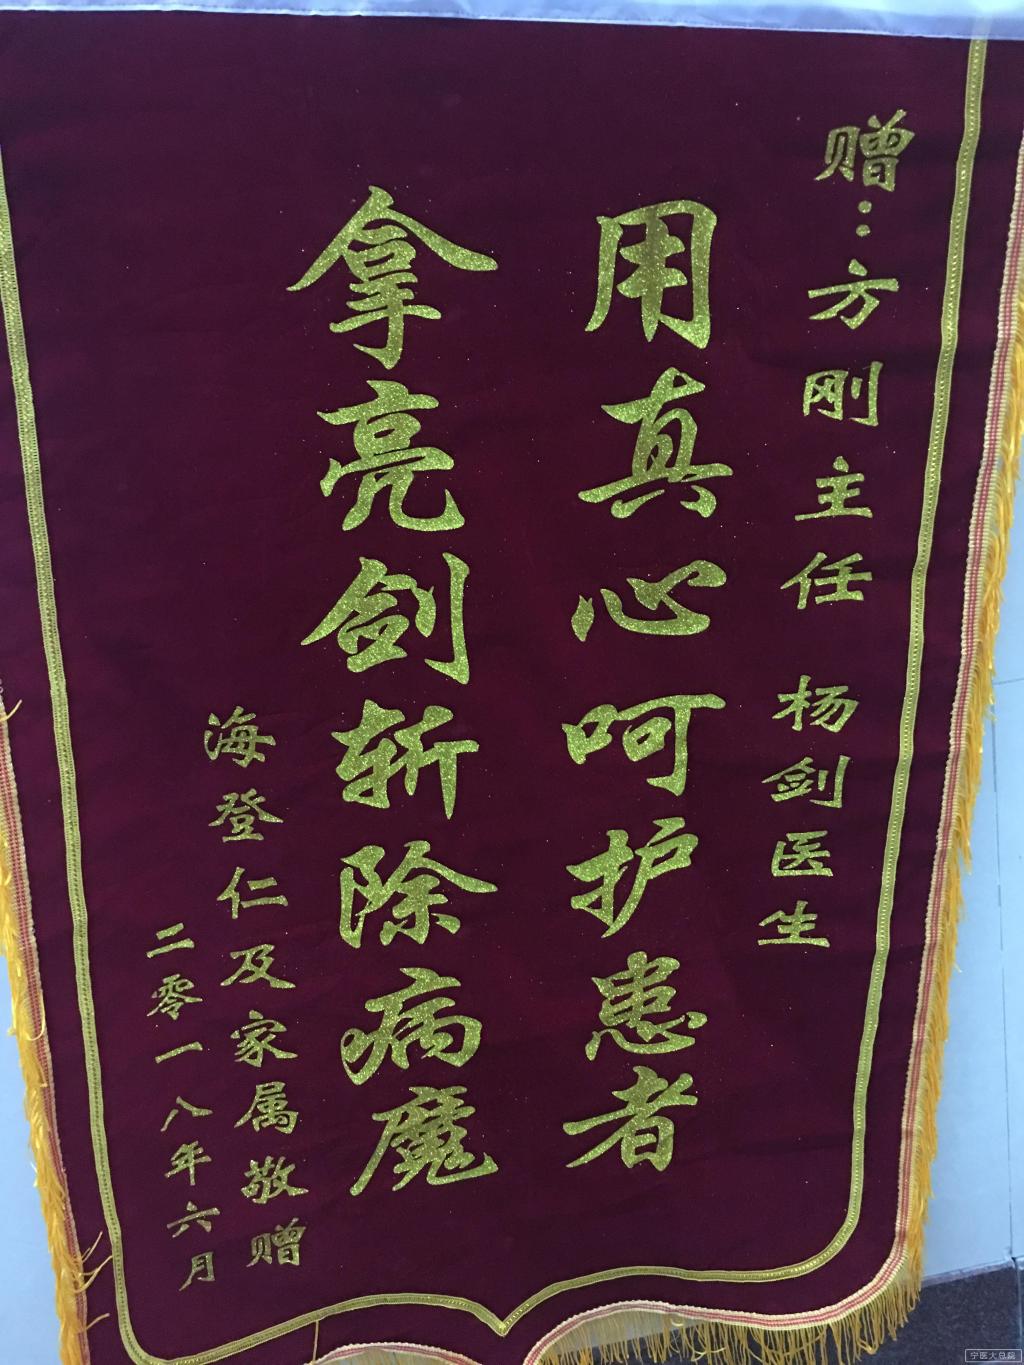 赠：方刚主任 杨剑医生
用真心呵护患者
拿亮剑斩除病魔
海登仁及家属敬赠
二零一八年六月
宁医大总院